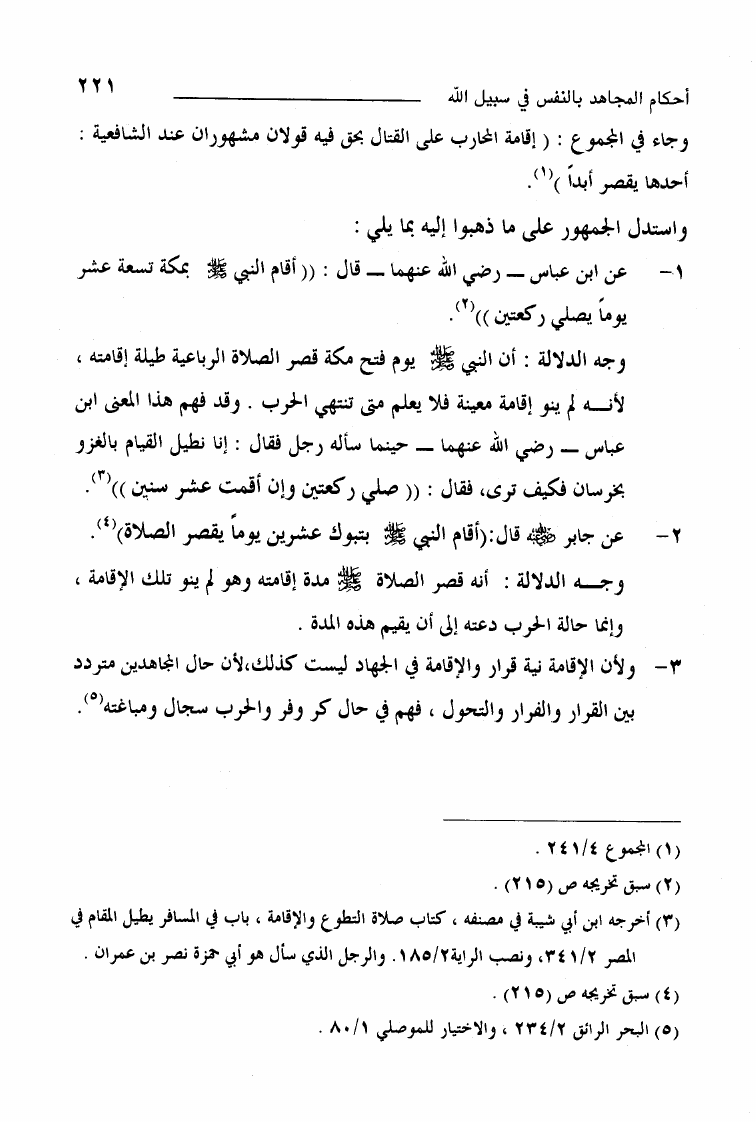 أحكام المجاهد بالنفس في سبيل الله ٢٢١
وجاء في المجموع : ( إقامة المحارب على القتال بحق فيه قولان مشهوران عند الشافعية :
أحدها يقصر أبداً )(١).
واستدل الجمهور على ما ذهبوا إليه بما يلي :
١- عن ابن عباس ــ رضي الله عنهما ــ قال : (( أقام النبي ﷺ بمكة تسعة عشر
يوماً يصلي ركعتين ))(٢).
وجه الدلالة : أن النبي ﷺ يوم فتح مكة قصر الصلاة الرباعية طيلة إقامته ،
لأنــه لم ينو إقامة معينة فلا يعلم متى تنتهي الحرب . وقد فهم هذا المعنى ابن
عباس ــ رضي الله عنهما ــ حينما سأله رجل فقال : إنا نطيل القيام بالغزو
بخرسان فكيف ترى، فقال : (( صلي ركعتين وإن أقمت عشر سنين ))(٣).
٢- عن جابر ﷺ قال:(أقام النبي ﷺ بتبوك عشرين يوماً يقصر الصلاة)(٤).
وجــه الدلالة : أنه قصر الصلاة ﷺ مدة إقامته وهو لم ينو تلك الإقامة ،
وإنما حالة الحرب دعته إلى أن يقيم هذه المدة .
٣- ولأن الإقامة نية قرار والإقامة في الجهاد ليست كذلك،لأن حال المجاهدين متردد
بين القرار والفرار والتحول ، فهم في حال كر وفر والحرب سجال ومباغته(٥).
(١) المجموع ٢٤١/٤ .
(٢) سبق تخريجه ص (٢١٥) .
(٣) أخرجه ابن أبي شيبة في مصنفه ، كتاب صلاة التطوع والإقامة ، باب في المسافر يطيل المقام في
المصر ٣٤١/٢، ونصب الراية١٨٥/٢. والرجل الذي سأل هو أبي حمزة نصر بن عمران .
(٤) سبق تخريجه ص (٢١٥) .
(٥) البحر الرائق ٢٣٤/٢ ، والاختيار للموصلي ٨٠/١ .